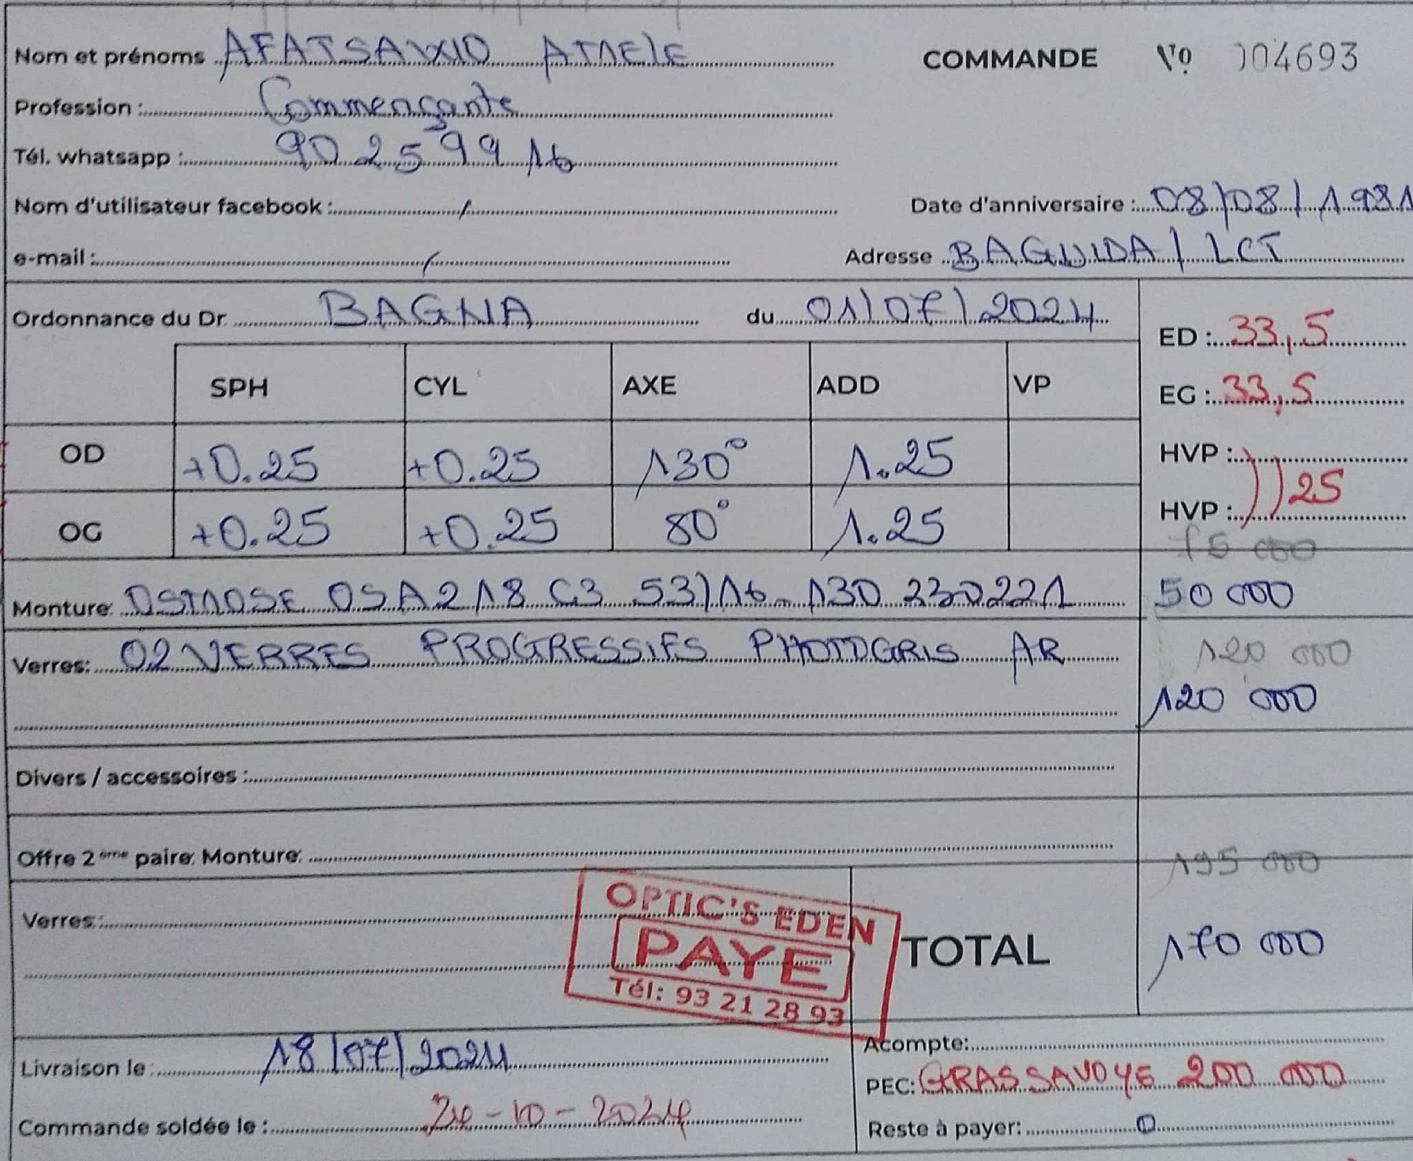 Nom et prénoms AFATSAWO ATMELE
COMMANDE N° 004693
Profession : Commençante
Tél. whatsapp : 90 25 99 16
Nom d'utilisateur facebook : /
Date d'anniversaire : 08/08/1981
e-mail : /
Adresse BAGUIDA / LCT
Ordonnance du Dr BAGNA du 01/07/2024
ED : 33,5
SPH CYL AXE ADD VP
EG : 33,5
OD +0.25 +0.25 130° 1.25
HVP :
25
OG +0.25 +0.25 80° 1.25
HVP :
75 000
Monture: OSMOSE OSA218 C3 53/16-130 230221 50 000
Verres: 02 VERRES PROGRESSIFS PHOTOGRIS AR 120 000
120 000
Divers / accessoires :
Offre 2ème paire: Monture:
195 000
Verres:
OPTIC'S EDEN
PAYE
Tél: 93 21 28 93
TOTAL 170 000
Livraison le : 18/07/2024
Acompte:
PEC: GRAS SAVOYE 200 000
Commande soldée le : 24-10-2024
Reste à payer: 0